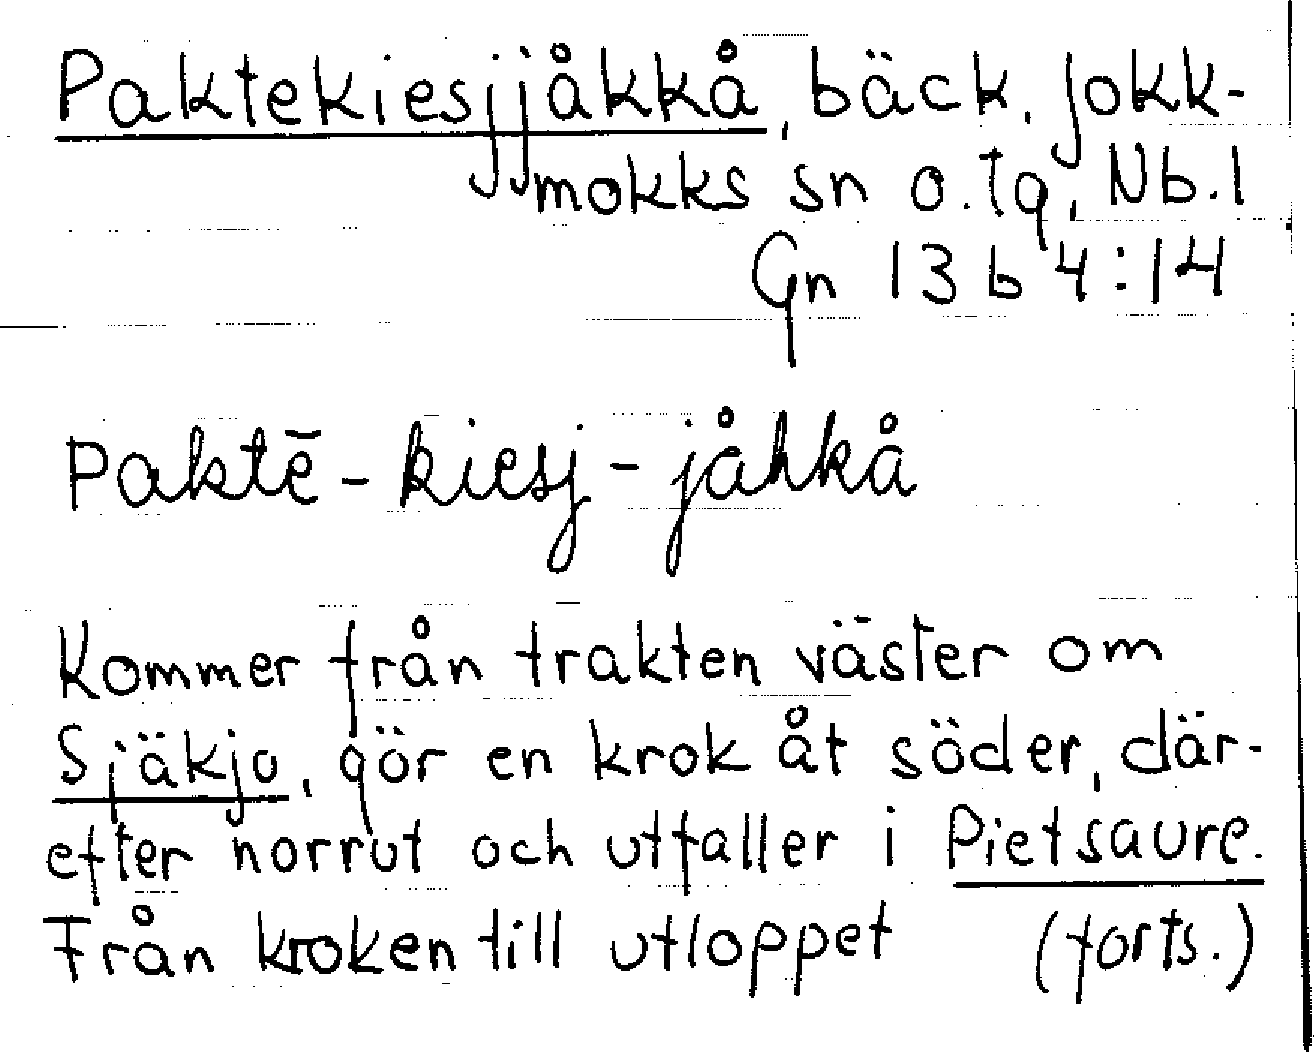 Paktekiesjjåkkå, bäck, Jokk-
mokks sn o. tg, Nb. l
Gn 13 b 4:14
Paktē-kiesj-jåhkå
Kommer från trakten väster om
Sjäkjo, gör en krok åt söder, där-
efter norrut och utfaller i Pietsaure.
Från kroken till utloppet (forts.)